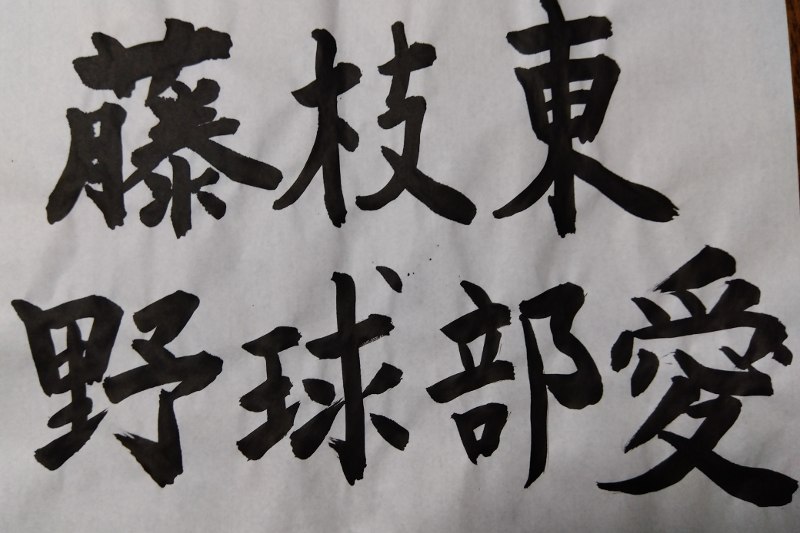 藤枝東
野球部愛